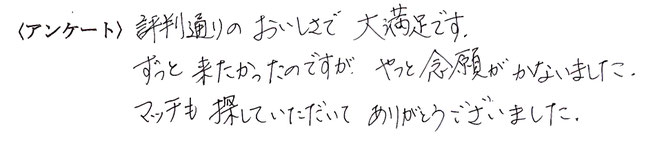 〈アンケート〉 評判通りの おいしさで 大満足です.
ずっと 来たかったのですが やっと 念願が かないました.
マッチも 探していただいて ありがとうございました.